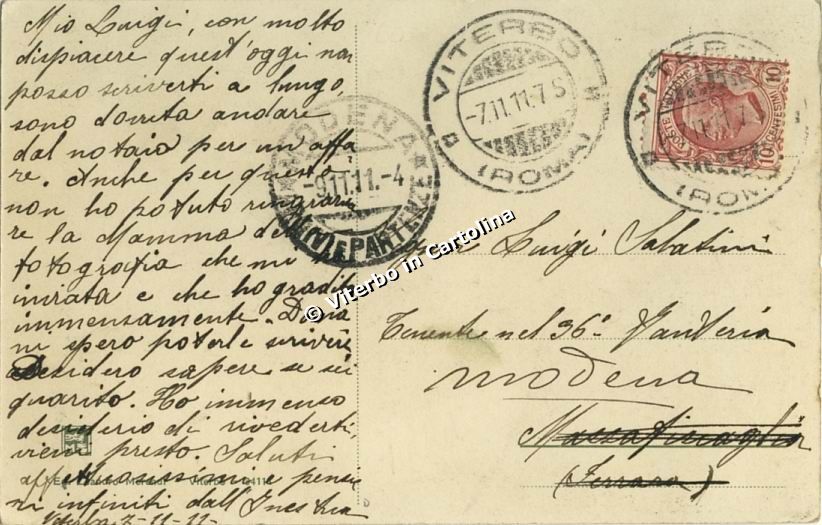 Mio Luigi, con molto
dispiacere quest'oggi non
posso scriverti a lungo,
sono dovuta andare
dal notaio per un affa
re. Anche per questo
non ho potuto ringrazia
re la Mamma del
fotografia che mi
inviata e che ho gradito
immensamente. Doma
ni spero poterle scrivere
Desidero sapere se sei
guarito. Ho immenso
desiderio di rivederti,
vieni presto. Saluti
affettuosissimi e pensie
ri infiniti dall'
Viterbo 7-11-11-
MODENA
-9.11.11.-4
ARRIVI E PARTENZE
VITERBO
-7.11.11-7 S
(ROMA)
VITERBO
11.11-7 S
(ROMA)
POSTE ITALIANE
10 CENTESIMI 10
© Viterbo in Cartolina
Luigi Sabatini
Tenente nel 36° Fanteria
Modena
Massafiscaglia
(Ferrara)
Viterbo